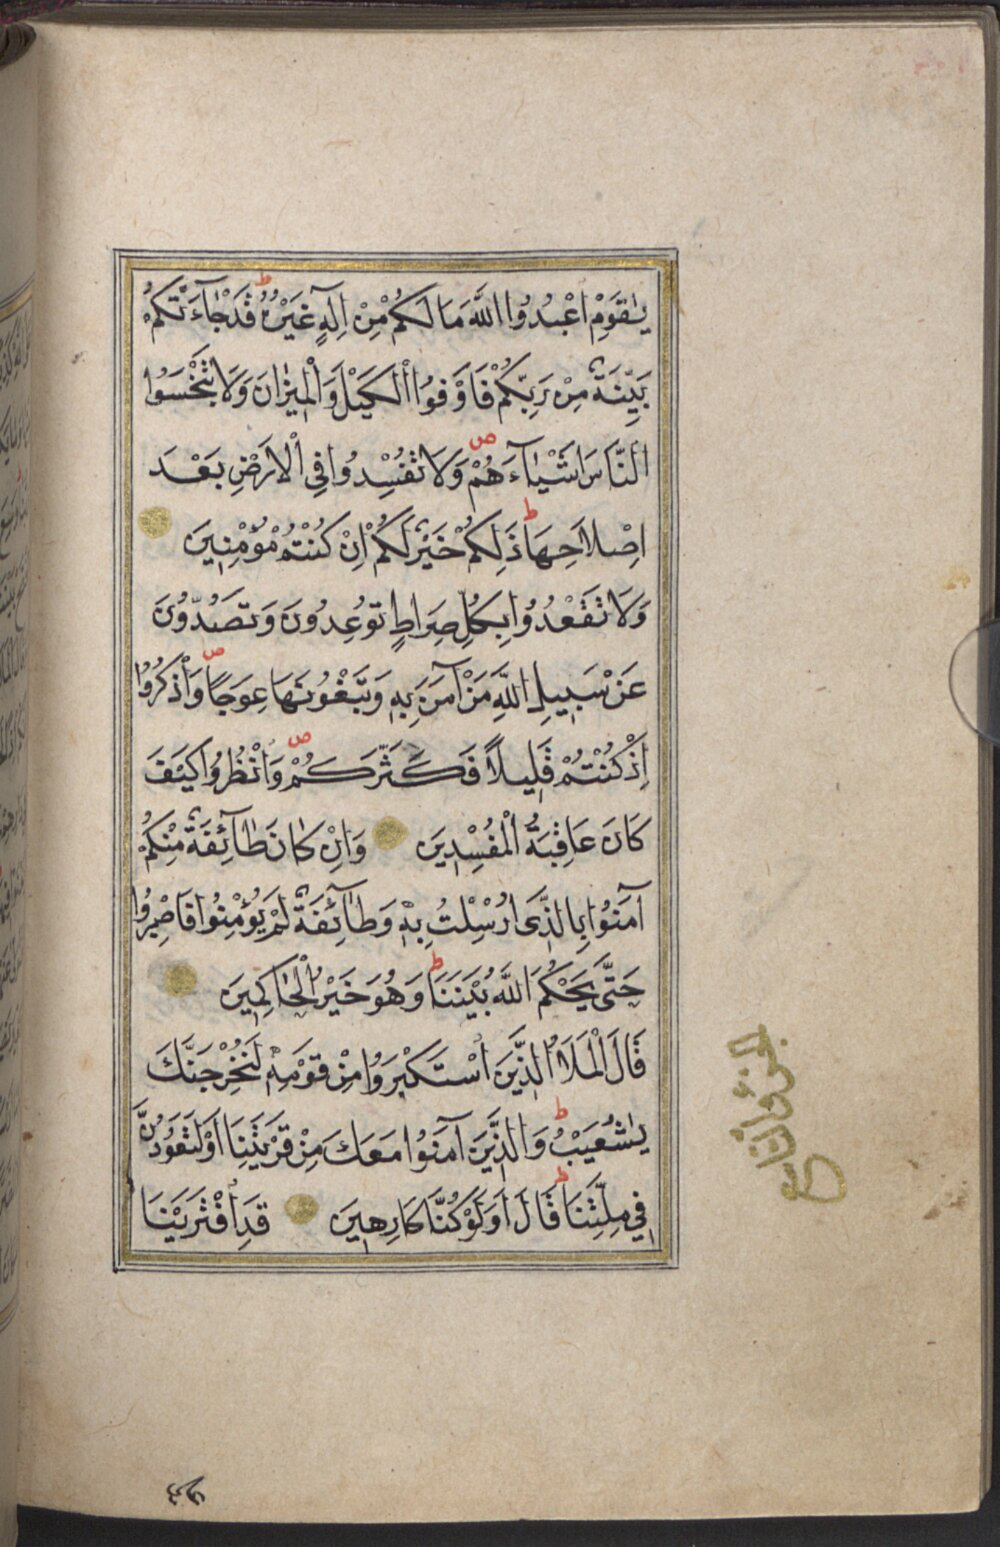 يٰقَوْمِ اعْبُدُوا اللّٰهَ مَا لَكُمْ مِنْ اِلٰهٍ غَيْرُهُ ط قَدْ جَاۤءَتْكُمْ
بَيِّنَةٌ مِنْ رَبِّكُمْ فَاَوْفُوا الْكَيْلَ وَالْمِيْزَانَ وَلَا تَبْخَسُوا
النَّاسَ اَشْيَاۤءَهُمْ ص وَلَا تُفْسِدُوا فِي الْاَرْضِ بَعْدَ
اِصْلَاحِهَا ط ذٰلِكُمْ خَيْرٌ لَكُمْ اِنْ كُنْتُمْ مُؤْمِنِينَ
وَلَا تَقْعُدُوا بِكُلِّ صِرَاطٍ تُوعِدُونَ وَتَصُدُّونَ
عَنْ سَبِيلِ اللّٰهِ مَنْ اٰمَنَ بِهِ وَتَبْغُونَهَا عِوَجًا ص وَاذْكُرُوا
اِذْ كُنْتُمْ قَلِيلًا فَكَثَّرَكُمْ ص وَانْظُرُوا كَيْفَ
كَانَ عَاقِبَةُ الْمُفْسِدِينَ وَاِنْ كَانَ طَاۤئِفَةٌ مِنْكُمْ
اٰمَنُوا بِالَّذِى اُرْسِلْتُ بِهِ وَطَاۤئِفَةٌ لَمْ يُؤْمِنُوا فَاصْبِرُوا
حَتّٰى يَحْكُمَ اللّٰهُ بَيْنَنَا ط وَهُوَ خَيْرُ الْحَاكِمِينَ
قَالَ الْمَلَاُ الَّذِينَ اسْتَكْبَرُوا مِنْ قَوْمِهِ لَنُخْرِجَنَّكَ
يٰشُعَيْبُ ط وَالَّذِينَ اٰمَنُوا مَعَكَ مِنْ قَرْيَتِنَا اَوْ لَتَعُودُنَّ
فِي مِلَّتِنَا ط قَالَ اَوَلَوْ كُنَّا كَارِهِينَ قَدِ افْتَرَيْنَا